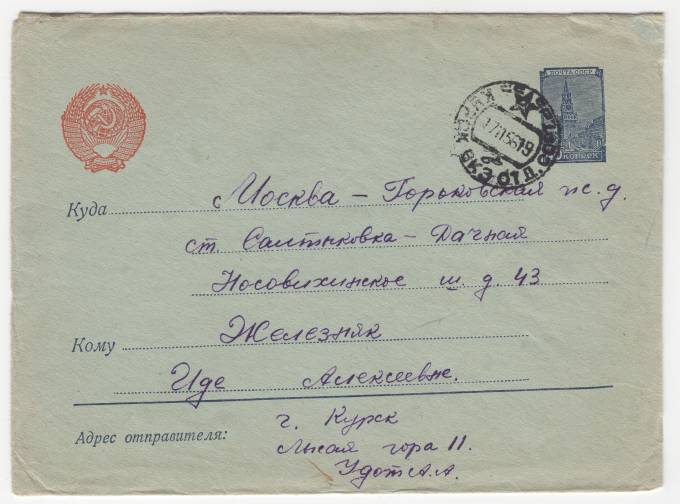 ПОЧТА СССР
КОПЕЕК
КУРСК
Куда Москва – Горьковская ж.д.
ст. Салтыковка – Дачная
Носовихинское ш. д. 43
Кому Железняк
Иде Алексеевне.
Адрес отправителя: г. Курск
Лысая гора 11.
Удот А.А.